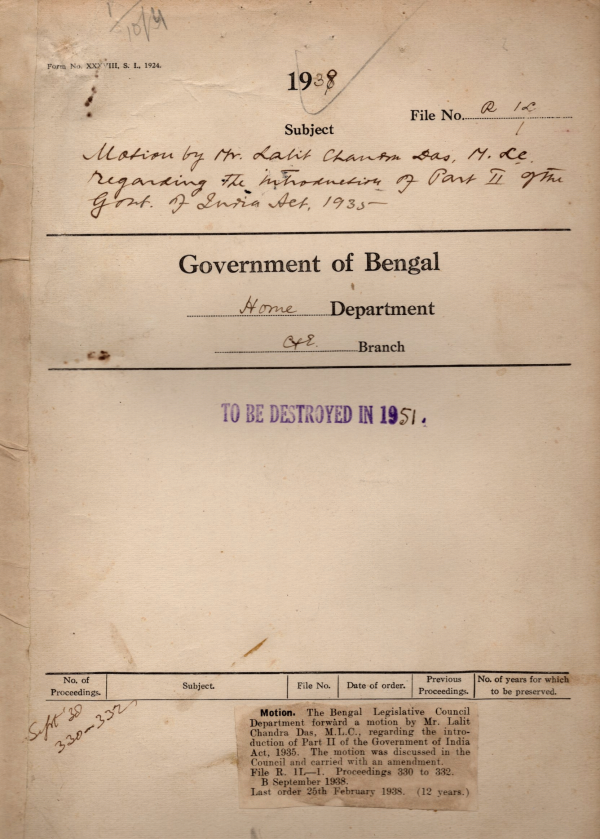 10/4
Form No. XXXVIII, S. I., 1924.
1938
File No. R 1L
1
Subject
Motion by Mr. Lalit Chandra Das, M.L.C.
regarding the introduction of Part II of the
Govt. of India Act, 1935
Government of Bengal
Home Department
C&E. Branch
TO BE DESTROYED IN 1951.
No. of Proceedings. Subject. File No. Date of order. Previous Proceedings. No. of years for which to be preserved.
Sept '38
330-332
Motion. The Bengal Legislative Council
Department forward a motion by Mr. Lalit
Chandra Das, M.L.C., regarding the intro-
duction of Part II of the Government of India
Act, 1935. The motion was discussed in the
Council and carried with an amendment.
File R. 1L—1. Proceedings 330 to 332.
B September 1938.
Last order 25th February 1938. (12 years.)